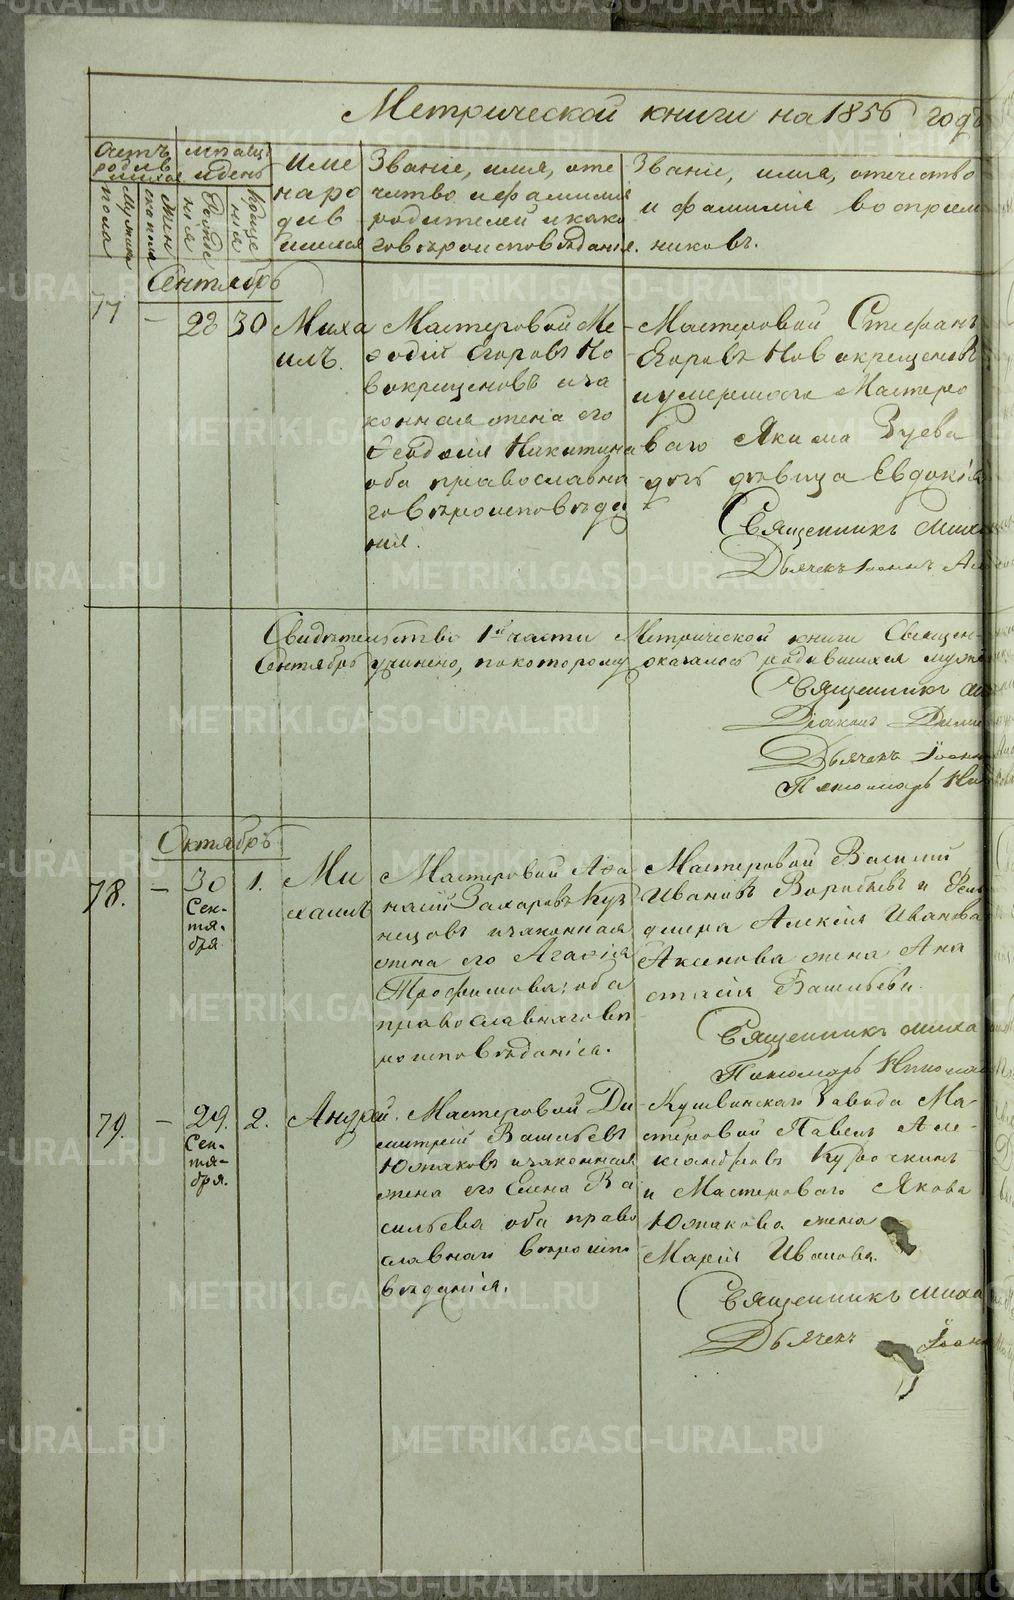 Метрической книги на 1856 годъ
Счетъ родившихся
Мужеска пола
Женска пола
Месяцъ и день
Рождения
Крещения
Име на родившихся
Званіе, имя, оте
чество и фамилия
родителей и како
го вѣроисповѣданія.
Званіе, имя, отечество
и фамилія воспріем
никовъ.
Сентябрь
77
-
28
30
Миха
илъ.
Мастеровой Ме
ѳодій Егоровъ Но
вокрещеновъ и за
конная жена его
Ѳеодосия Никитина
оба православна
го вѣроисповѣда
ния.
Мастеровой Стефанъ
Егоровъ Новокрещеновъ
и умершаго Мастеро
ваго Якима Зуева
дочь дѣвица Евдокія
Священникъ Миха
Дьячекъ Іоаннъ
Свидѣтельство 1й части Метрической книги Священ-
Сентябрь учинено, по которому оказалось родившихся муже
Священникъ
Діаконъ Дими
Дьячекъ Іоанн
Пономарь Ни
Октябрь
78.
-
30
Сен-
тя-
бря
1.
Ми
хаилъ
Мастеровой Аѳа
насий Захаровъ Куз
нецовъ и законная
жена его Агаѳія
Трофимова; оба
православнаго вѣ
роисповѣданія.
Мастеровой Василий
Иванов Воробьевъ и Фель
дшера Алексія Иванова
Аксенова жена Ана
стасія Васильева.
Священникъ Миха
Пономарь Никола
79.
-
29.
Сен-
тя-
бря.
2.
Андрей.
Мастеровой Ди
митрий Васильевъ
Южаковъ и законная
жена его Елена Ва
сильева оба право
славнаго вѣроиспо
вѣданія.
Кушвинскаго Завода Ма-
стеровой Павелъ Але-
ксандровъ Курочкинъ
и Мастероваго Якова
Южакова жена
Марія Иванова.
Священникъ Миха
Дьячекъ Іоанн
METRIKI.GASO-URAL.RU